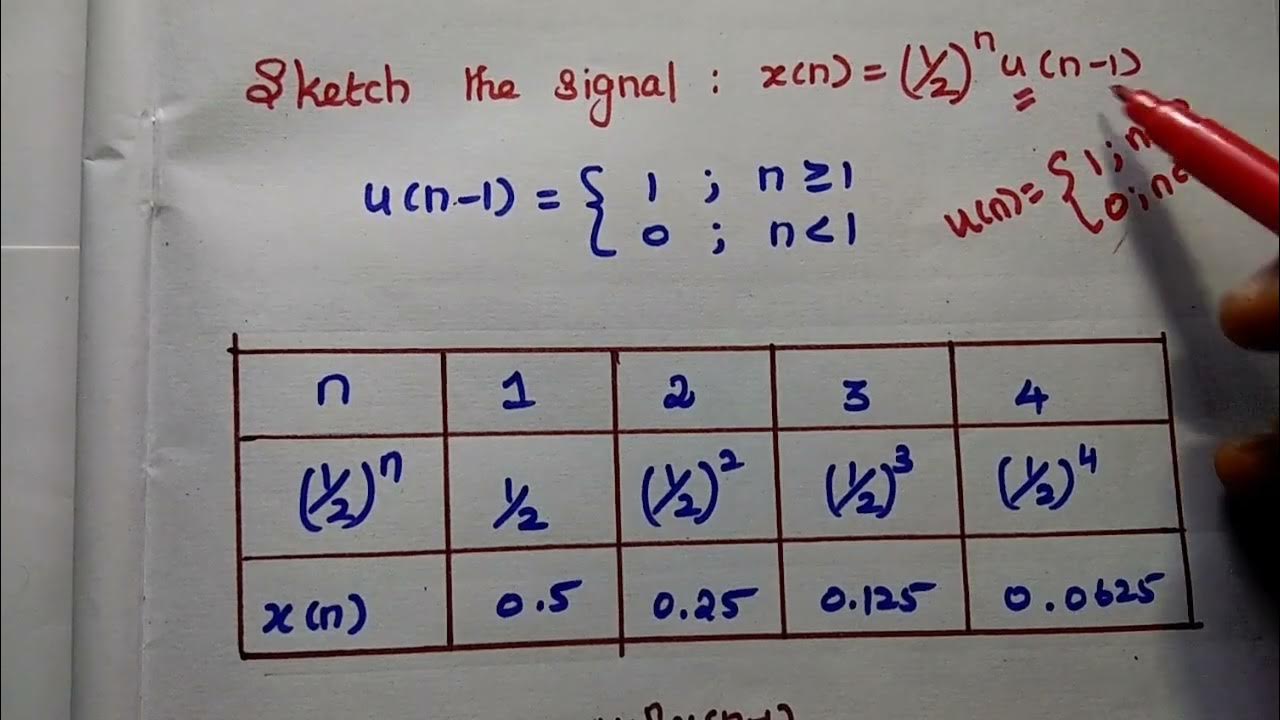 Sketch the signal : x(n) = (1/2)^n u(n-1)
u(n-1) = { 1 ; n ≥ 1
0 ; n < 1
u(n) = { 1 ; n
0 ; n<
n 1 2 3 4
(1/2)^n 1/2 (1/2)^2 (1/2)^3 (1/2)^4
x(n) 0.5 0.25 0.125 0.0625